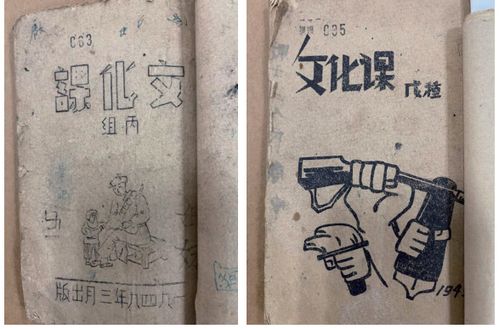 C63
文化課
丙組
一九四八年三月出版
035
文化课
戊種
194